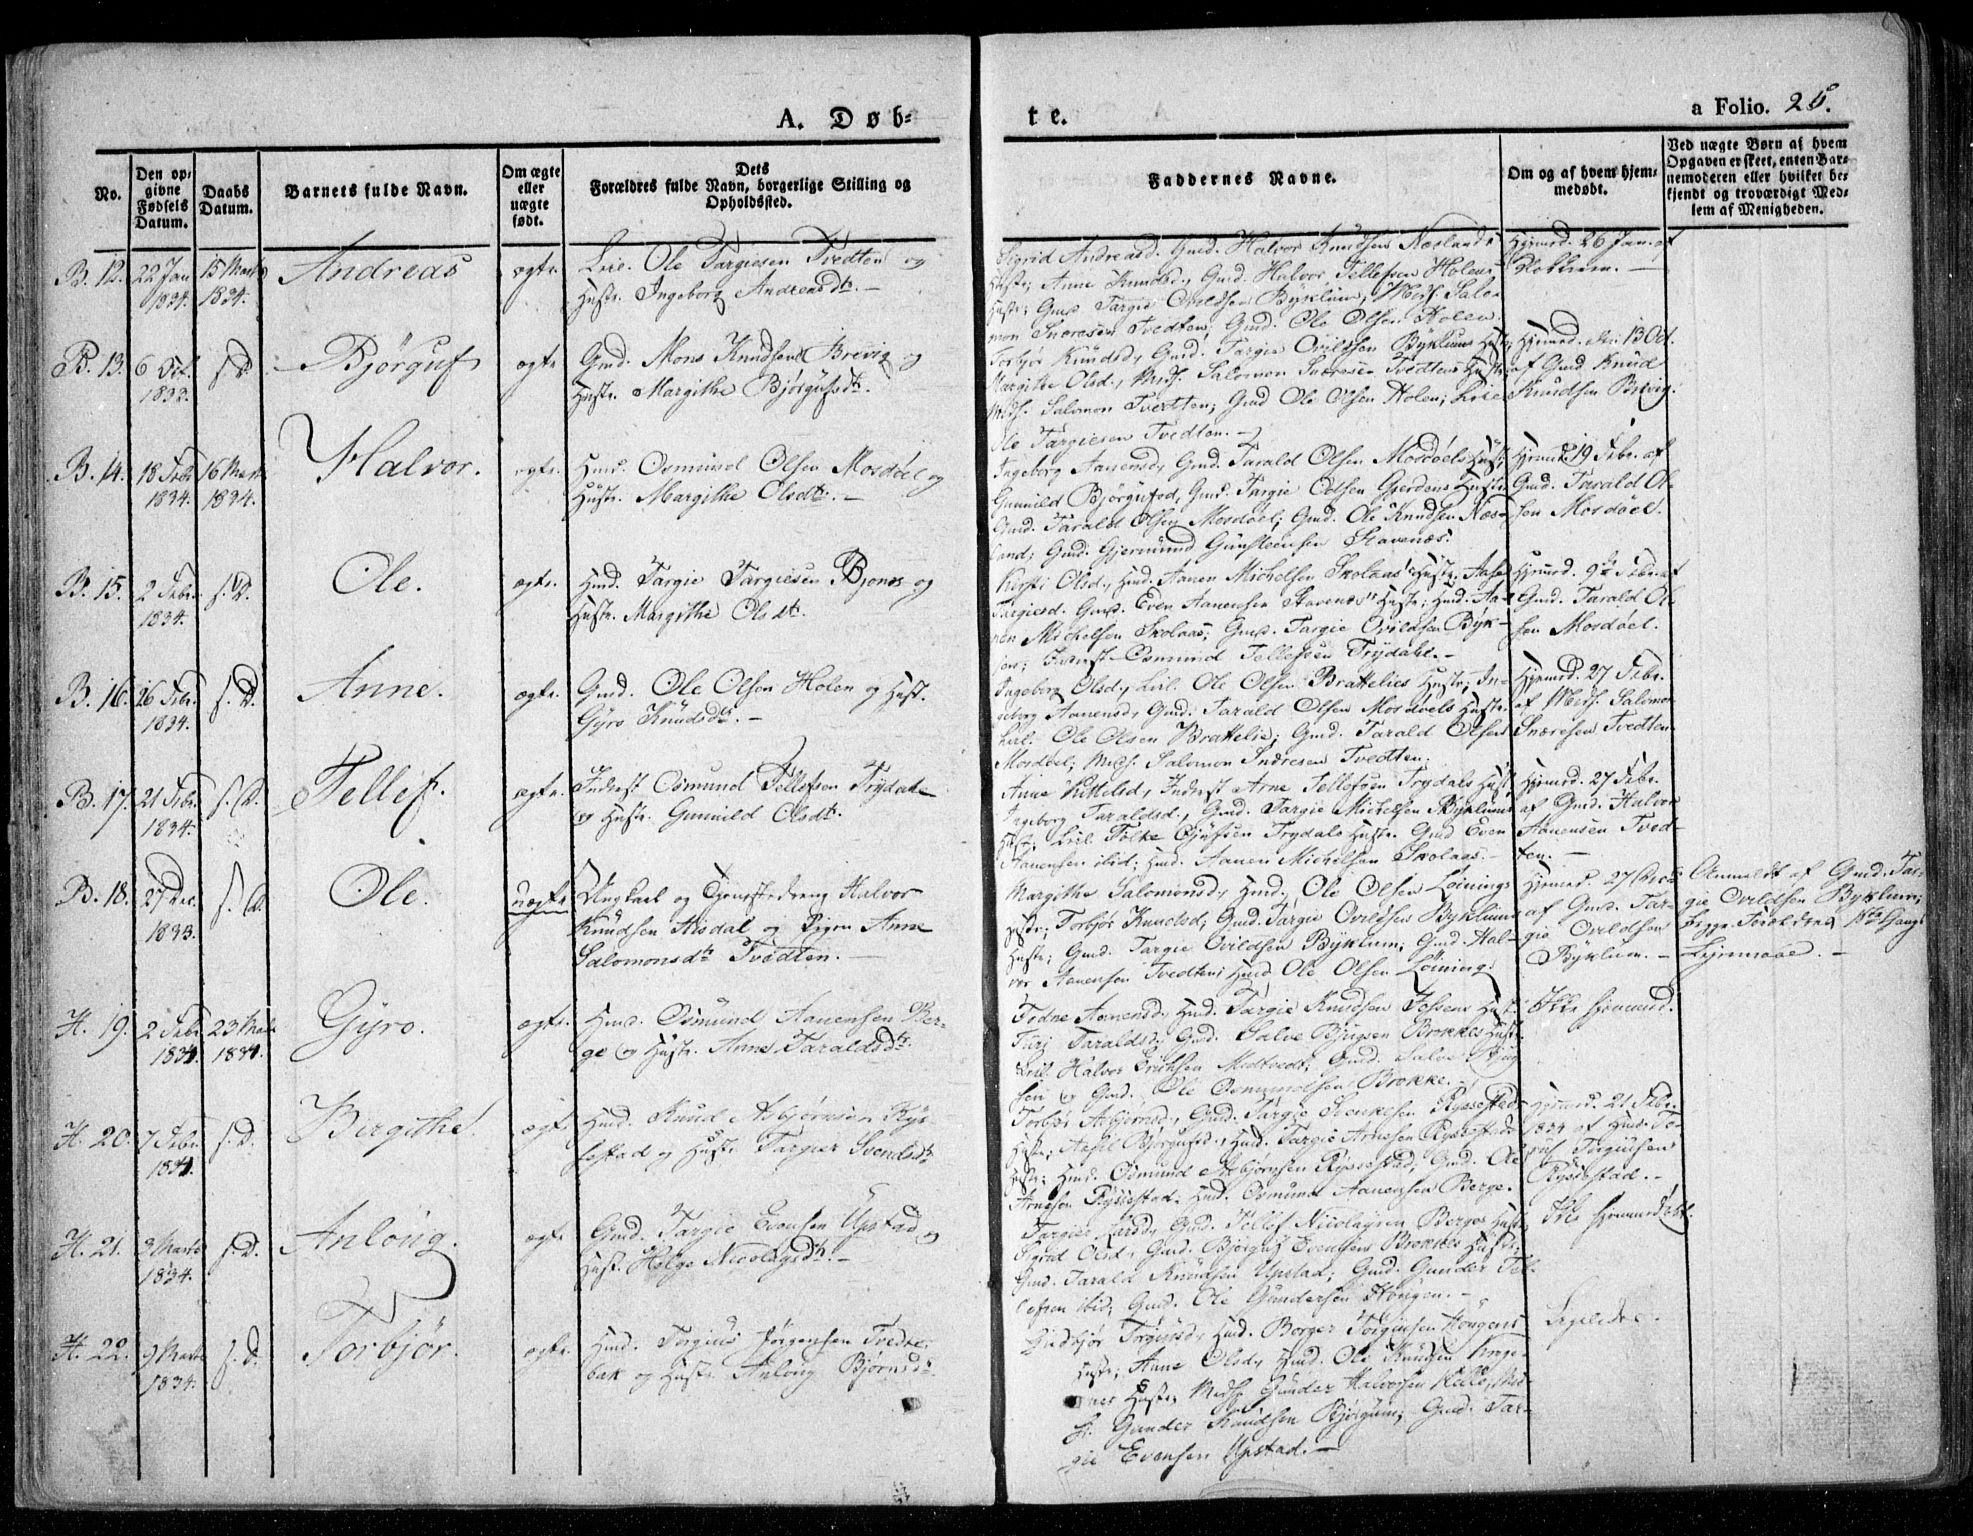 A. Døb=
te.
a Folio. 25.
No.
Den op=
givne
Fødsels
Datum.
Daabs
Datum.
Barnets fulde Navn.
Om ægte
eller
uægte
født.
Dets
Forældres fulde Navn, borgerlige Stilling og
Opholdssted.
Faddernes Navne.
Om og af hvem hjem=
medøbt.
Ved uægte Børn af hvem
Opgaven er skeet, enten Bar=
nemoderen eller hvilket be=
kjendt og troværdigt Med=
lem af Menigheden.
B. 12. 22 Jan 1834. 15 Marts 1834. Andreas ægte.
Leil. Ole Targiesen Tvedten og
Hustr. Ingeborg Andreasdtr. –
Sigrid Andreasd. Gmd. Halvor Knudsen Næslands
Hustr; Anne Knudsd., Gmd. Halvor Tellefsen Holens
Hustr; Gmd Targie Ovildsen Byklum; Meds. Salo=
mon Snæresen Tvedten; Gmd. Ole Olsen Holen.
Hjemd. 26 Jan. af
Klokkeren. –
B. 13. 6 Oct. 1833. s. D. Bjørguf ægte
Gmd. Mons Knudsen Brevig og
Hustr. Margithe Bjørgufsdtr. –
Torbjør Knudsd, Gmd. Targie Ovildsen Byklums Hustr;
Margithe Olsd., Meds. Salomon Snæresen Tvedtens Hustr;
Meds. Salomon Tvedten; Gmd Ole Olsen Holen; Leil
Ole Targiesen Tvedten. –
Hjemd. den 13 Oct.
af Gmd Knud
Knudsen Brevig.
B. 14. 18 Febr. 1834. 16 Marts 1834. Halvor. ægte.
Hmd. Osmund Olsen Mosdøel og
Hustr. Margithe Olsdtr. –
Ingeborg Aanensd, Gmd. Tarald Olsen Mosdøels Hustr,
Gunnild Bjørgufsd, Gmd. Targie Oelsen Gjerdens Hustr.
Gmd. Tarald Olsen Mosdøel; Gmd. Ole Knudsen Næs=
land; Gmd. Gjermund Gunsteensen Stavenæs.
Hjemd. 19 Febr. af
Gmd. Tarald Ol=
sen Mosdøel.
B. 15. 2 Febr. 1834. s. D. Ole. ægte.
Hmd. Targie Targiesen Bjones og
Hustr. Margithe Olsdtr.
Kirsti Olsd, Hmd. Aanen Michelsen Skolaas Hustr, Aase
Targiesd. Gmd. Even Aanensen Stavenes Hustr; Hmd. Aa=
nen Michelsen Skolaas; Gmd. Targie Ovildsen Byk=
lum; Inderst Osmund Tellefsen Trydahl. –
Hjemd. 9de Febr. af
Gmd. Tarald Ol=
sen Mosdøel.
B. 16. 26 Febr. 1834. s. D. Anne. ægte.
Gmd. Ole Olsen Holen og Hust.
Gyro Knudsdtr. –
Ingeborg Olsd., Leil. Ole Olsen Brattelies Hustr; In=
geborg Aanensd, Gmd. Tarald Olsen Mosdøels Hustr.
Leil. Ole Olsen Brattelie; Gmd. Tarald Olsen
Mosdøel; Meds. Salomon Snæresen Tvedten.
Hjemd. 27 Febr.
af Meds. Salomon
Snæresen Tvedten.
B. 17. 21 Febr. 1834. s. D. Tellef. ægte.
Inderst Osmund Tellefsen Trydale
og Hustr. Gunnild Olsdt.
Anne Kittelsd, Inderst Arne Tellefsen Trydals Hustr,
Ingeborg Taraldsd., Gmd. Targie Michelsen Byklums
Hustr, Leil. Folke Gjufsen Trydals Hustr. Gmd Even
Aanensen ibid; Hmd. Aanen Michelsen Skolaas. –
Hjemd. 27 Febr.
af Gmd. Halvor
Aanensen Tved=
ten. –
B. 18. 27 Dec. 1833. s. D. Ole. uægte.
Ungkarl og Tjenestedreng Halvor
Knudsen Aasdal og Pigen Anne
Salomonsdtr Tvedten. –
Margithe Salomonsd, Hmd. Ole Olsen Løinings
Hustr; Torbjør Knudsd, Gmd. Targie Ovildsen Byklums
Hustr; Gmd. Targie Ovildsen Byklum; Gmd. Hal=
vor Aanensen Tvedten; Hmd Ole Olsen Løining.
Hjemd. 27 Dec.
af Gmd. Tar=
gie Ovildsen
Byklum. –
Anmeldt af Gmd. Tar=
gie Ovildsen Byklum;
begge Forældrenes 1ste Gangs
Leiermaal. –
H. 19. 2 Febr. 1834. 23 Marts 1834. Gyro. ægte.
Hmd. Osmund Aanensen Ber=
ge og Hustr. Anne Taraldsdtr.
Todne Aanensd, Hmd. Targie Knudsen Jossens Hust.
Turj Taraldsd, Gmd. Salve Bjugsen Brokkes Hustr.
Leil. Halvor Erichsen Medtvedt; Gmd. Salve Bjug
sen og Gmd. Ole Osmundsen Brokke. –
Ikke hjemmed.
H. 20. 7 Febr. 1834. s. D. Birgithe ægte
Hmd. Knud Asbjørnsen Rys
sestad og Hustr Targier Svendsdtr
Torbjør Asbjørnsd., Gmd. Targie Svenkesen Ryssestads
Hustr; Aasil Bjørgufsd., Hmd. Targie Arnesen Ryssestads
Hustr; Hmd. Osmund Asbjørnsen Ryssestad, Gmd. Ole
Arnesen Ryssestad. Hmd. Osmund Aanensen Berge.
Hjemd. 21 Febr.
1834 af Hmd. To=
ruf Torguusen
Ryssestad. –
H. 21. 3 Marts 1834. s. D. Anlöug. ægte
Gmd. Targie Evensen Upstad og
Hust. Helge Nicolaysdtr. –
Targier Larsd, Gmd. Tellef Nicolaysen Berges Hustr,
Sigrid Olsd, Gmd. Bjørguf Evensens Brokkes Hustr,
Gmd. Tarald Knudsen Upstad; Gmd. Gunder Tel=
lefsen ibid; Gmd. Ole Gundersen Hougen. –
Ikke hjemmedøbt.
H. 22. 9 Marts 1834. s. D. Torbjør. ægte.
Hmd. Torgius Jörgensen Tvedte=
bak og Hustr Anlöug Bjørnsdtr
Gudbjør Torguusd, Hmd. Borger Torguusen Hougens
Hustr, Anne Olsd, Hmd. Ole Knudsen
Hustr; Meds Gunder Halvorsen
Gunder Knudsen Bjørgum; Gmd. Tar=
gie Evensen Upstad. –
Ligeledes.